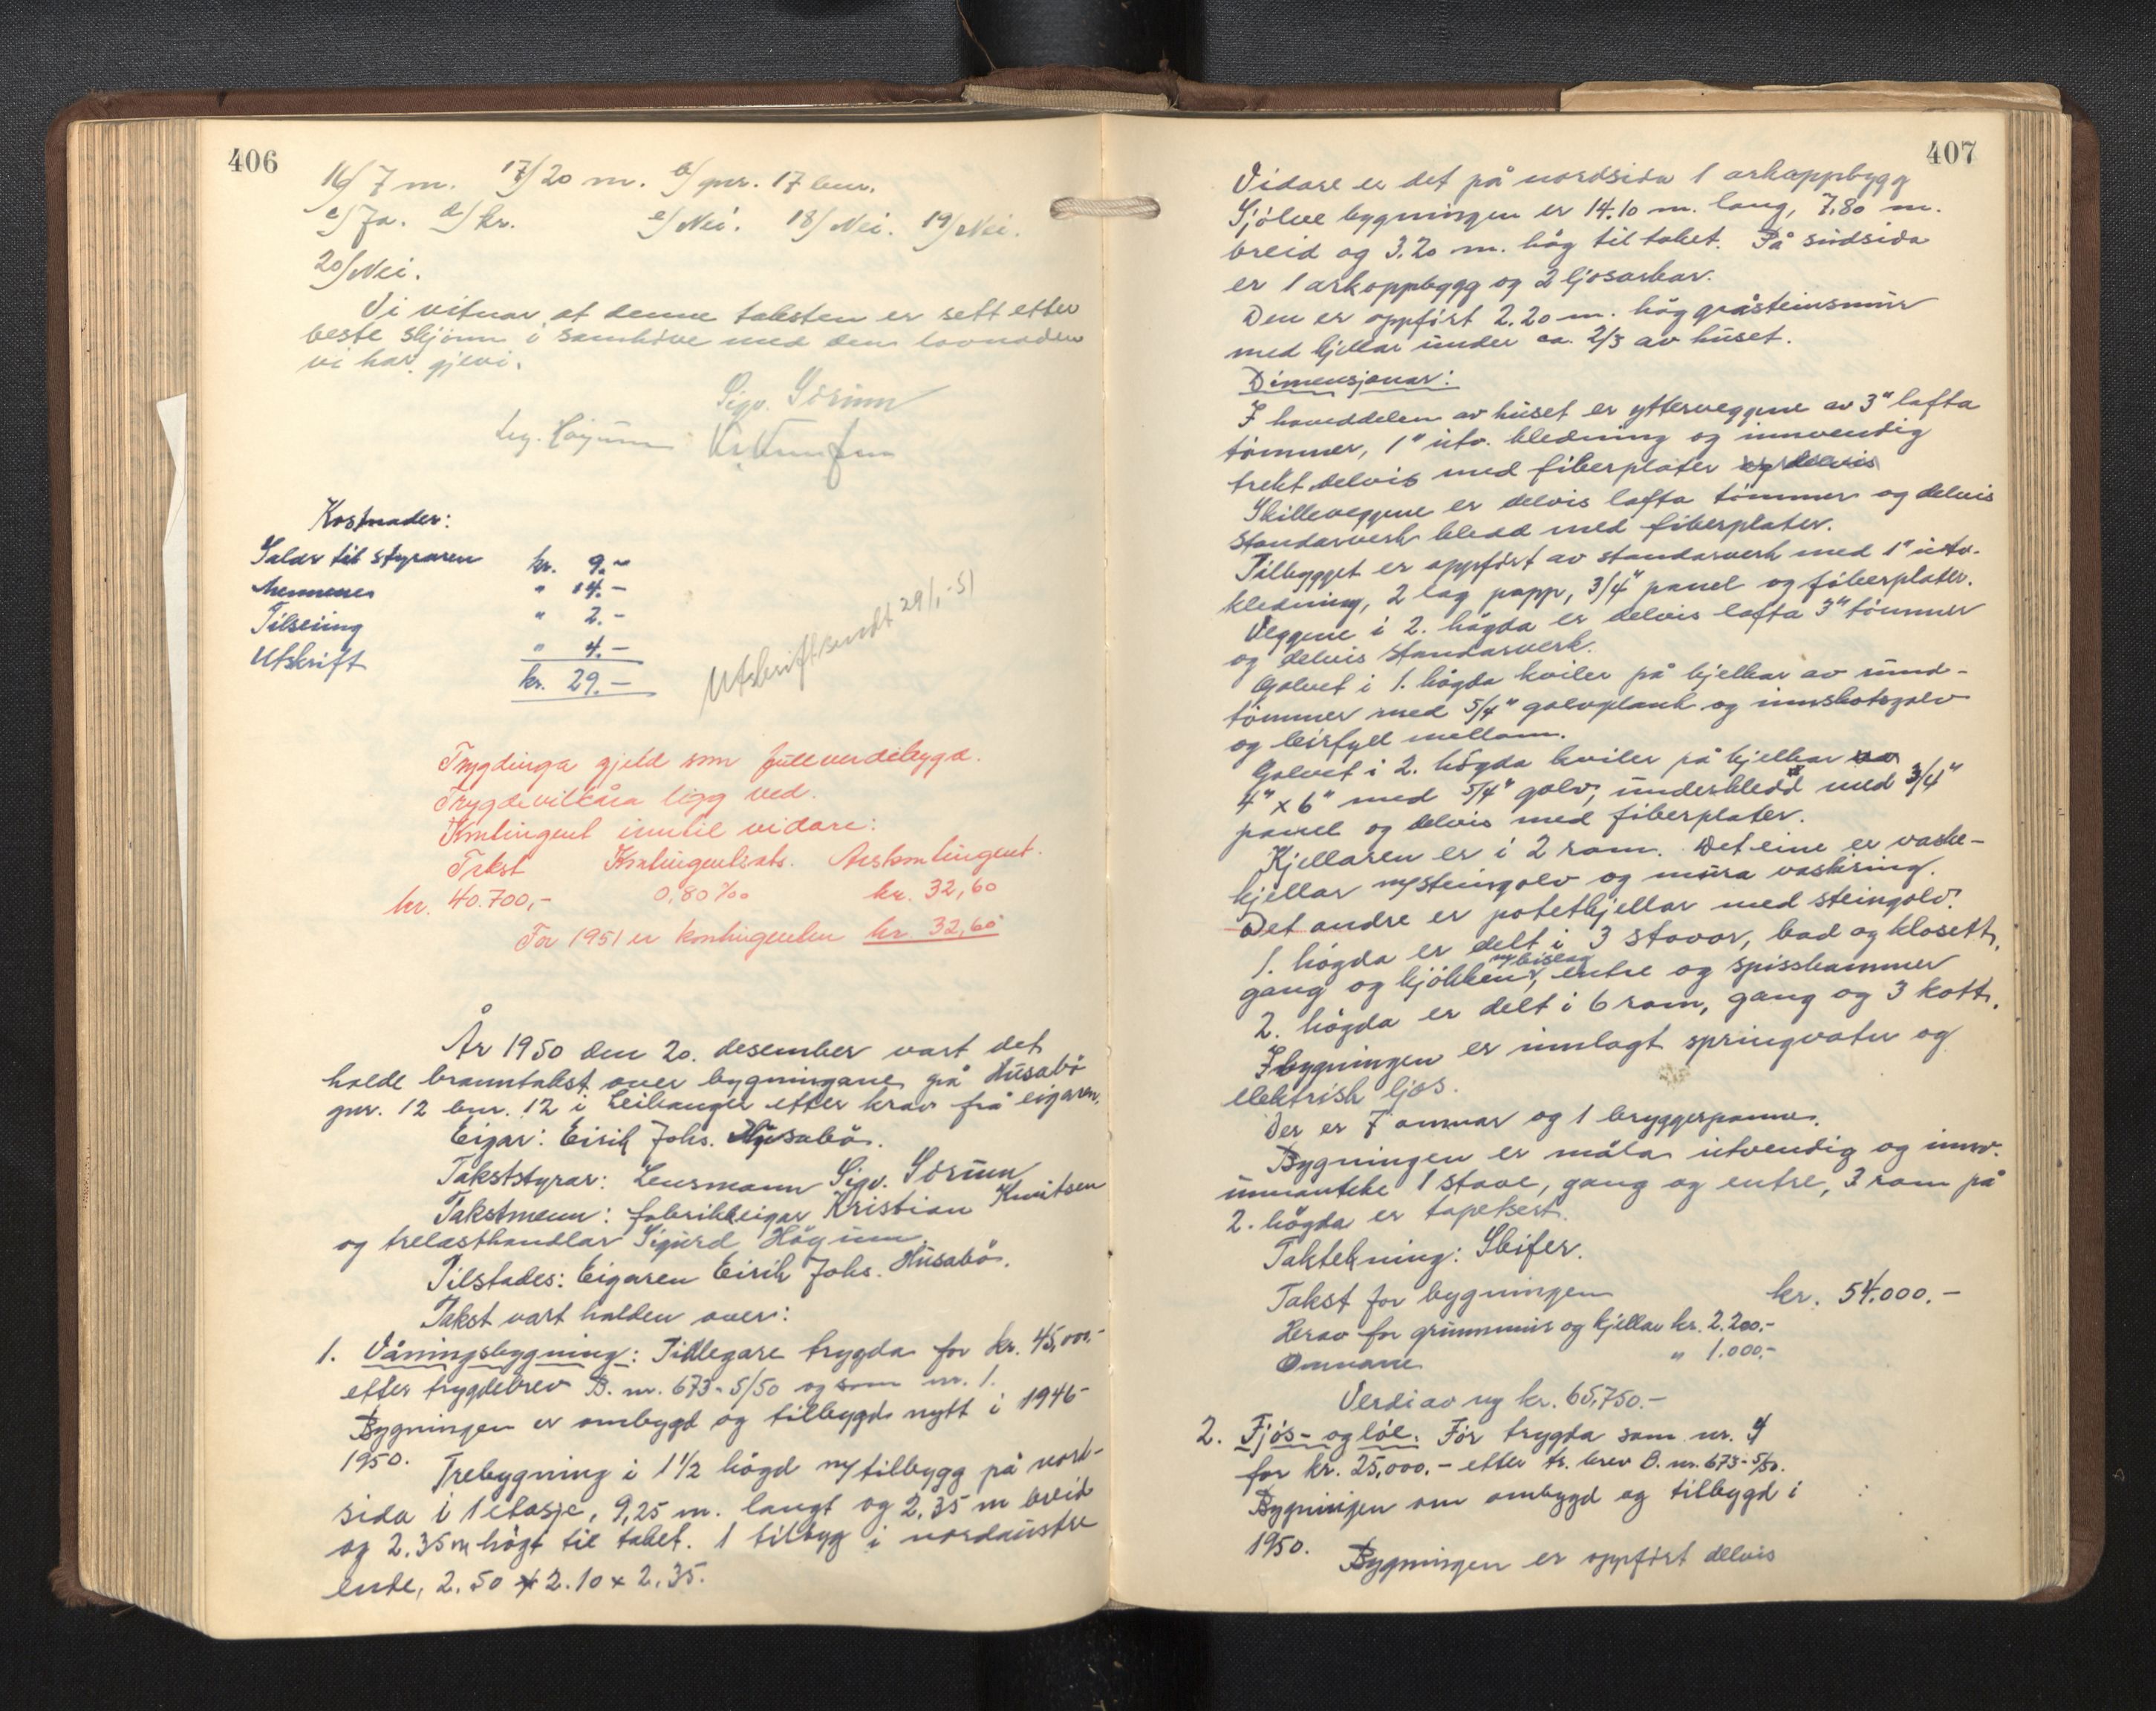 406
16/ 7 m. 17/ 20 m. b/ gnr. 17 bnr.
c/ Ja. d/ kr. e/ Nei. 18/ Nei. 19/ Nei.
20/ Nei.
Vi vitnar at denne taksten er sett etter
beste skjønn i samhøve med den lovnaden
vi har gjevi.
Sigv. Sörum
Sig. Högum Kr. Knutsen
Kostnader:
Salær til styraren kr. 9.-
Mennene " 14.-
Tilseiing " 2.-
Utskrift " 4.-
kr. 29.-
Utskrift sendt 29/1-51
Trygdinga gjeld som fullverdetrygd.
Trygdevilkåra ligg ved.
Kontingent inntil vidare:
Takst Kontingentsats. Årskontingent.
kr. 40.700,- 0,80‰ kr. 32,60
For 1951 er kontingenten kr. 32,60
År 1950 den 20. desember vart det
halde branntakst over bygningane på Husabö
gnr. 12 bnr. 12 i Leikanger etter krav frå eigaren.
Eigar: Eirik Johs. Husabö.
Takststyrar: Lensmann Sigv. Sörum
Takstmenn: fabrikkeigar Kristian Knutsen
og trelasthandlar Sigurd Högum.
Tilstades: Eigaren Eirik Johs. Husabö.
Takst vart halden over:
1. Våningsbygning: Tidlegare trygda for kr. 45,000.-
etter trygdebrev B. nr. 673-5/50 og som nr. 1.
Bygningen er ombygd og tilbygd nytt i 1946-
1950.
Trebygning i 1½ högd m/ tilbygg på nord-
sida i 1 etasje, 9,25 m. langt og 2,35 m breid
og 2.35 m högt til taket. 1 tilbyg i nordaustre
ende, 2.50 x 2.10 x 2.35.
407
Vidare er det på nordsida 1 arkoppbygg
Sjölve bygningen er 14.10 m. lang, 7,80 m.
breid og 3.20 m. hög til taket. På südsida
er 1 arkoppbygg og 2 ljosarkar.
Den er oppfört 2.20 m. hög gråsteinsmur
med kjellar under ca. 2/3 av huset.
Dimensjonar:
I hoveddelen av huset er ytterveggene av 3" lafta
tömmer, 1" utv. kledning og innvendig
trekt delvis med fiberplater og delvis
Skilleveggene er delvis lafta tömmer og delvis
standarverk kledd med fiberplater.
Tilbygget er oppfört av standarverk med 1" utv.
kledning, 2 lag papp, 3/4" panel og fiberplater.
Veggene i 2. högda er delvis lafta 3" tömmer
og delvis standarverk.
Golvet i 1. högda kviler på bjelkar av rund-
tömmer med 5/4" golvplank og innskotsgolv
og leirfyll mellom.
Golvet i 2. högda kviler på bjelkar av
4" x 6" med 5/4" golv, underkledd med 3/4"
panel og delvis med fiberplater.
Kjellaren er i 2 rom. Det eine er vaske-
kjellar m/steingolv og mura vaskiring.
Det andre er potetkjellar med steingolv.
1. högda er delt i 3 stovor, bad og klosett,
gang og kjökken m/bislag, entre og spisskammer
2. högda er delt i 6 rom, gang og 3 kott.
I bygningen er innlagt springvatn og
elektrisk ljos.
Der er 7 omnar og 1 bryggerpanne.
Bygningen er måla utvendig og innv.
unnanteke 1 stove, gang og entre, 3 rom på
2. högda er tapetsert.
Taktekning: Skifer.
Takst for bygningen kr. 54.000.-
Herav for grunnmur og kjellar kr. 2.200.-
Omnane " 1.000.-
Verdi av ny kr. 65,750.-
2. Fjös- og löe. Før trygda som nr. 4
for kr. 25,000.- etter tr. brev B. nr. 673-5/50.
Bygningen om ombygd og tilbygd i
1950.
Bygningen er oppfört delvis